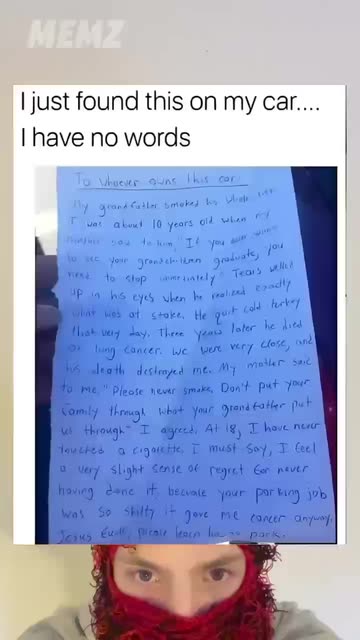 MEMZ
I just found this on my car....
I have no words
To whoever owns this car:
My grandfather smoked his whole life
I was about 10 years old when my
mother said to him, "If you ever want
to see your grandchildren graduate, you
need to stop immediately". Tears welled
up in his eyes when he realized exactly
what was at stake. He quit cold turkey
that very day. Three years later he died
of lung cancer. We were very close, and
his death destroyed me. My mother said
to me, "Please never smoke. Don't put your
family through what your grandfather put
us through" I agreed. At 18, I have never
touched a cigarette. I must say, I feel
a very slight sense of regret for never
having done it, because your parking job
was so shitty it gave me cancer anyway.
Jesus please learn how to park.